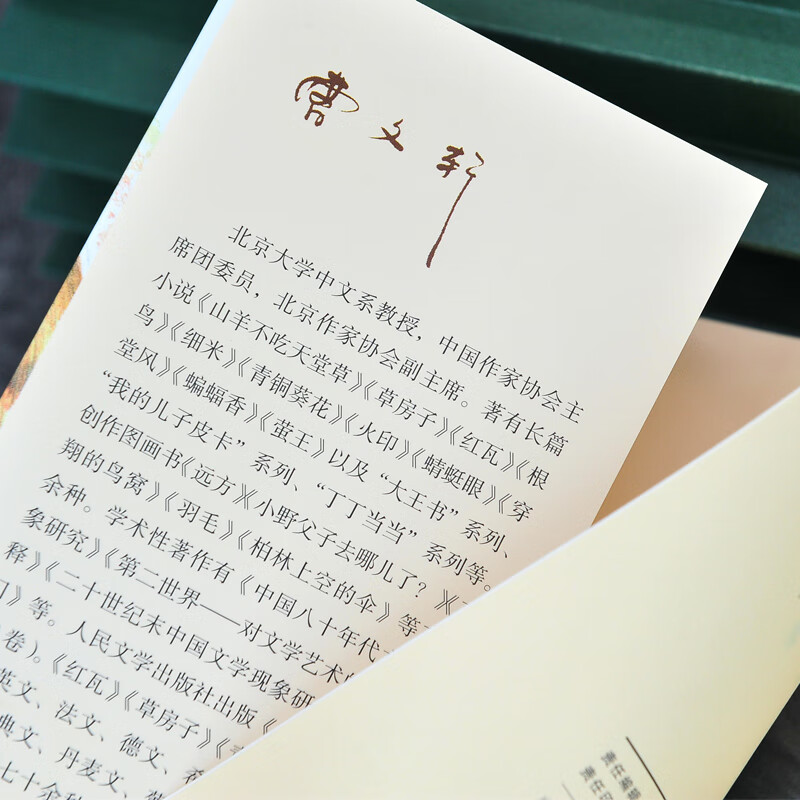 曹文轩
北京大学中文系教授，中国作家协会主
席团委员，北京作家协会副主席。著有长篇
小说《山羊不吃天堂草》《草房子》《红瓦》《根
鸟》《细米》《青铜葵花》《火印》《蜻蜓眼》《穿
堂风》《蝙蝠香》《萤王》以及“大王书”系列、
“我的儿子皮卡”系列、“丁丁当当”系列等。
创作图画书《远方》《小野父子去哪儿了？》《
翔的鸟窝》《羽毛》《柏林上空的伞》等
余种。学术性著作有《中国八十年代
象研究》《第二世界——对文学艺术
释》《二十世纪末中国文学现象研
门》等。人民文学出版社出版《
卷）。《红瓦》《草房子》《
英文、法文、德文、
典文、丹麦文、
七十余种
责任编辑
责任印